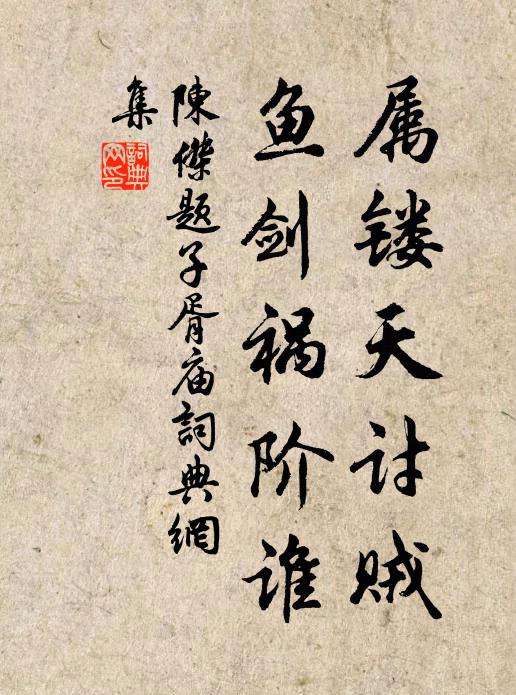 属镂天讨贼
鱼剑祸阶谁
陳傑题子胥庙詞典網
集
詞典網印